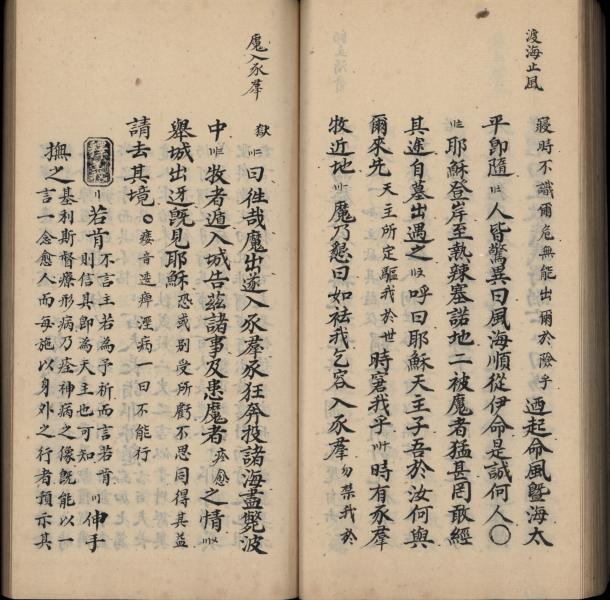 渡海止風
寢時不識爾危無能出爾於險乎迺起命風曁海太
平卽隨人皆驚異曰風海順從伊命是誠何人〇
耶穌登岸至執辣塞諾地二被魔者猛甚罔敢經
其途自墓出遇之呼曰耶穌天主子吾於汝何與
爾來先天主所定驅我於世時窘我乎時有豕羣
牧近地魔乃懇曰如祛我乞容入豕羣勿禁我於
魔入豕羣
獄曰徃哉魔出遂入豕羣豕狂奔投諸海盡斃波
中牧者遁入城告茲諸事及患魔者痊愈之情
舉城出迓旣見耶穌恐或別受所虧不思同得其益
請去其境。痿音逶痺溼病一曰不能行
若肯不言主若為予祈而言若肯則信其卽為天主也可知伸手
撫之基利斯督療形病乃痊神病之像旣能以一
言一念愈人而每施以身外之行者預示其